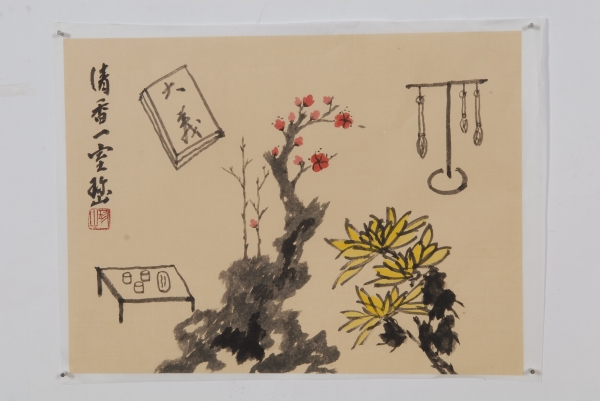 清香一室
大義